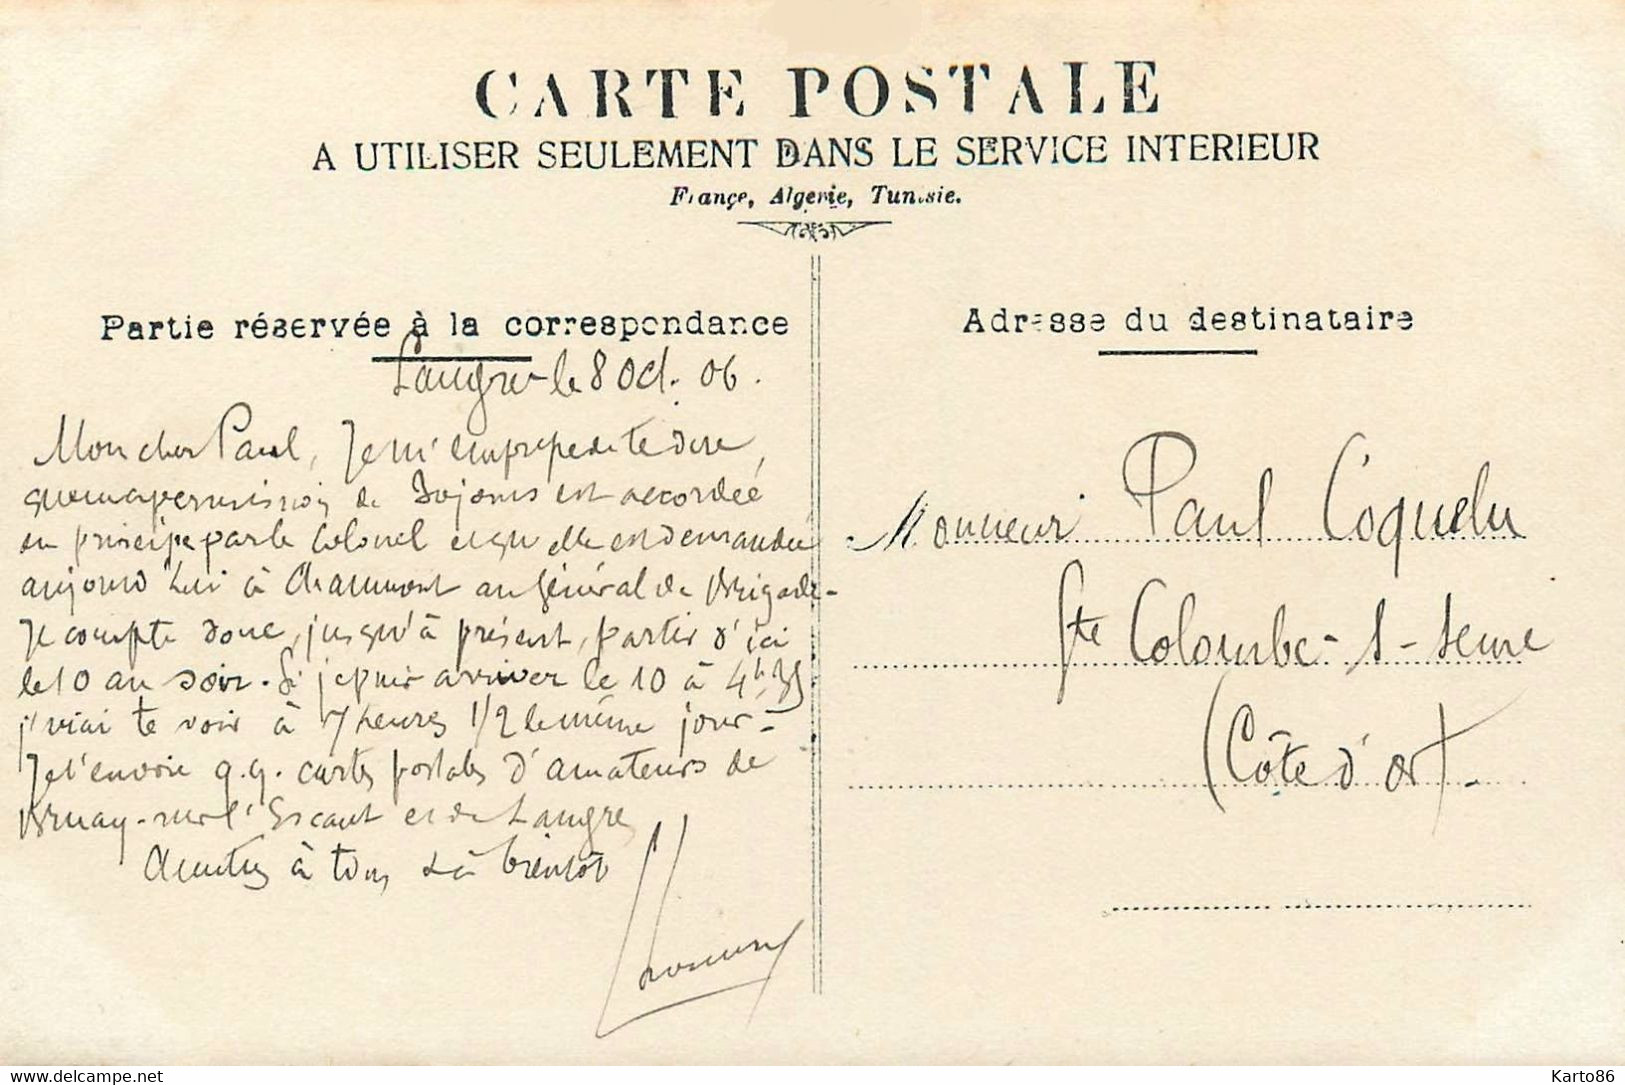 CARTE POSTALE
A UTILISER SEULEMENT DANS LE SERVICE INTERIEUR
France, Algerie, Tunisie.
Partie réservée à la correspondance
Langres le 8 Oct. 06.
Mon cher Paul, Je m'empresse de te dire
que ma permission de 30 jours est accordée
en principe par le Colonel et qu'elle est demandée
aujourd'hui à Chaumont au Général de Brigade-
Je compte donc, jusqu'à présent, partir d'ici
le 10 au soir. Si je puis arriver le 10 à 4h35
j'irai te voir à 7 heures 1/2 le même jour-
Je t'envoie q.q. cartes postales d'amateurs de
Bruay-sur l'Escaut et de Langres
Amitiés à tous & à bientôt
Adresse du destinataire
Monsieur Paul Coquelu
Ste Colombe-s-Seine
(Côte d'Or).
Delcampe.net
Karto86